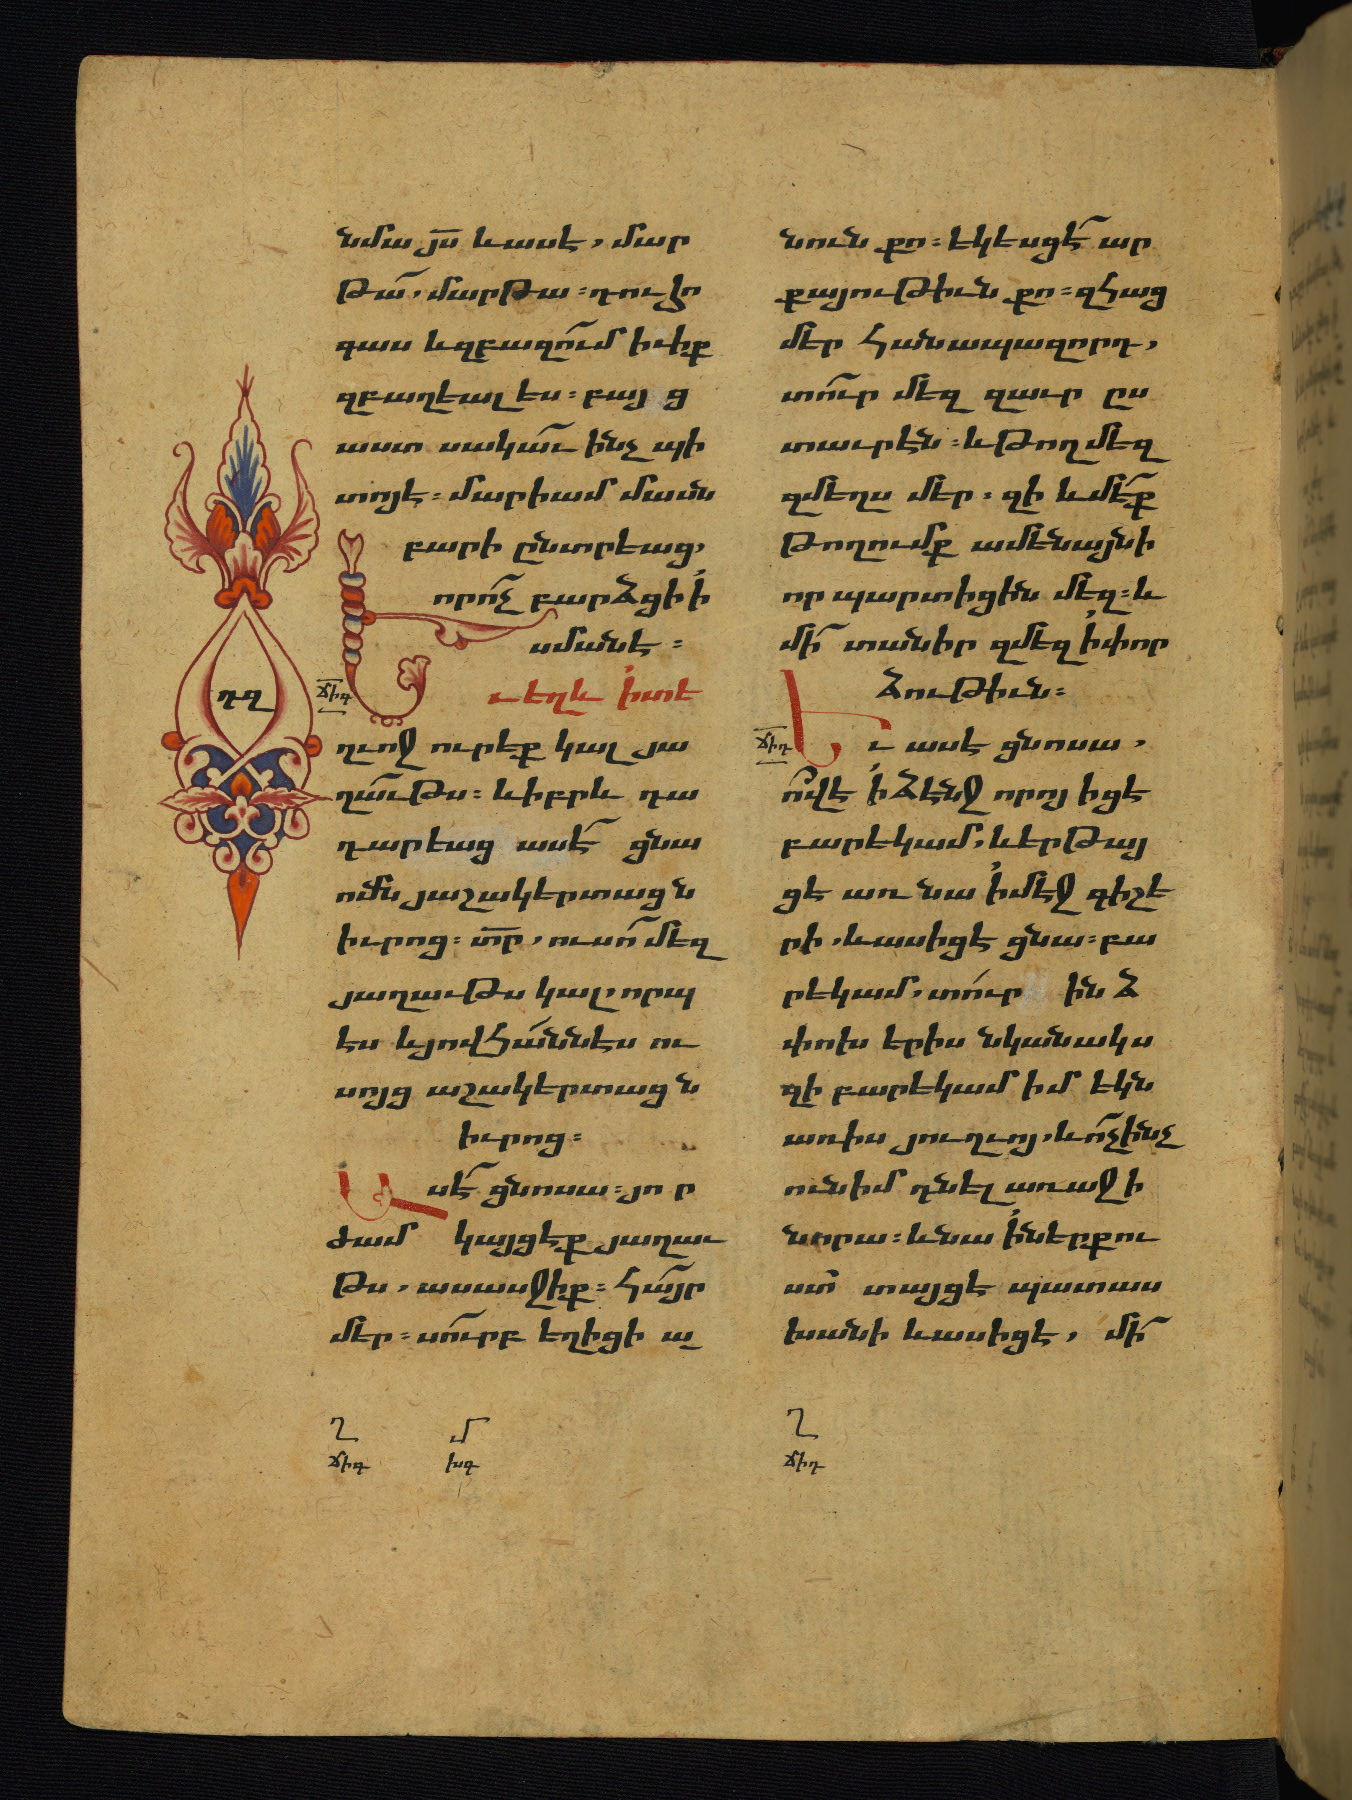 նմա յս̅ և ասէ, մար
թա՜, մարթա։ դու հո
գաս և զբազո՜ւմ իւիք
զբաղեալ ես։ բայց
աստ սակա՜ւ ինչ պի
տոյէ։ մարիամ մասն
բարի ընտրեաց,
որո՜չ բարձցի ի՛
նմանէ։
Եւ եղև ի՛տե
ղւոջ ուրեք կալ յա
ղա՜ւթս։ և իբրև դա
դարեաց ասե՜ ցնա
ոմն յաշակերտացն
իւրոց։ տր̅, ուսո՜ մեզ
յաղաւթս կալ, որպ
ես և յովհա՜ննես ու
սոյց աշակերտացն
իւրոց։
Ասե՜ ցնոսա։ յոր
ժամ կայցէք յաղաւ
թս, ասասջիք։ հա՜յր
մեր։ սո՜ւրբ եղիցի ա
նուն քո։ եկեսցե՜ ար
քայութիւն քո։ զհաց
մեր հանապազորդ,
տո՜ւր մեզ զաւր ըս
տաւրէն։ և թող մեզ
զմեղս մեր։ զի և մե՜ք
թողումք ամենայնի
որ պարտիցին մեզ։ և
մի՜ տանիր զմեզ ի՛փոր
ձութիւն։
Եւ ասէ ցնոսա,
ո՜վ է ի՛ձէնջ որոյ իցէ
բարեկամ, և երթայ
ցէ առ նա ի՛մէջ գիշե
րի, և ասիցէ ցնա։ բա
րեկամ, տո՛ւր ինձ
փոխ երիս նկանակս
զի բարեկամ իմ եկն
առիս յուղւոյ, և ո՜չ ինչ
ունիմ դնել առաջի
նորա։ և նա ի՛ներքու
ստ տայցէ պատաս
խանի և ասիցէ, մի՜
դղ
ճիգ
ճիդ
Ղ Մ
ճիգ խգ
Ղ
ճիդ